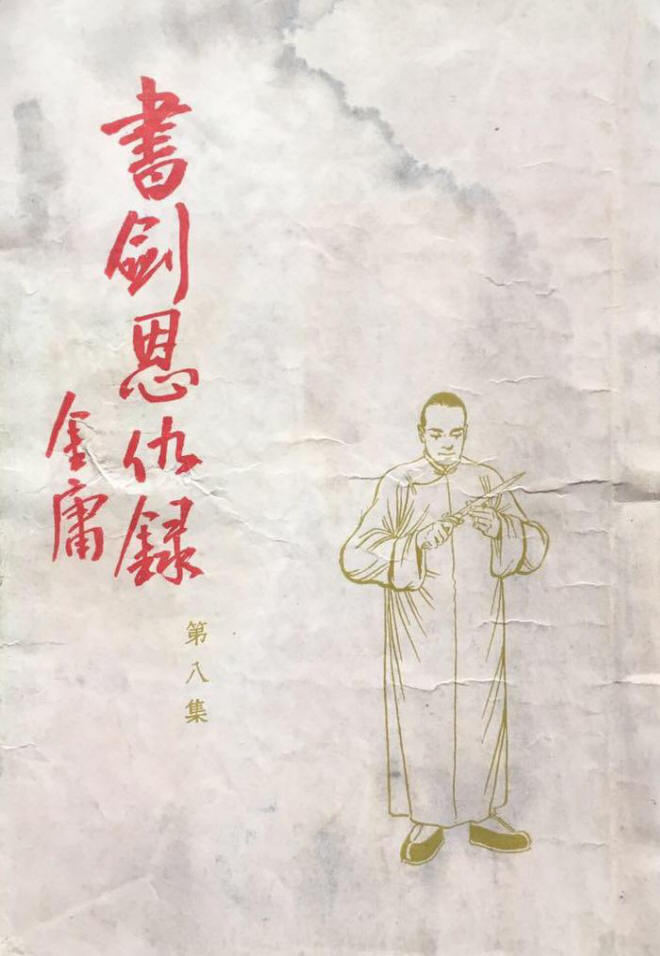 書劍恩仇録
金庸
第八集